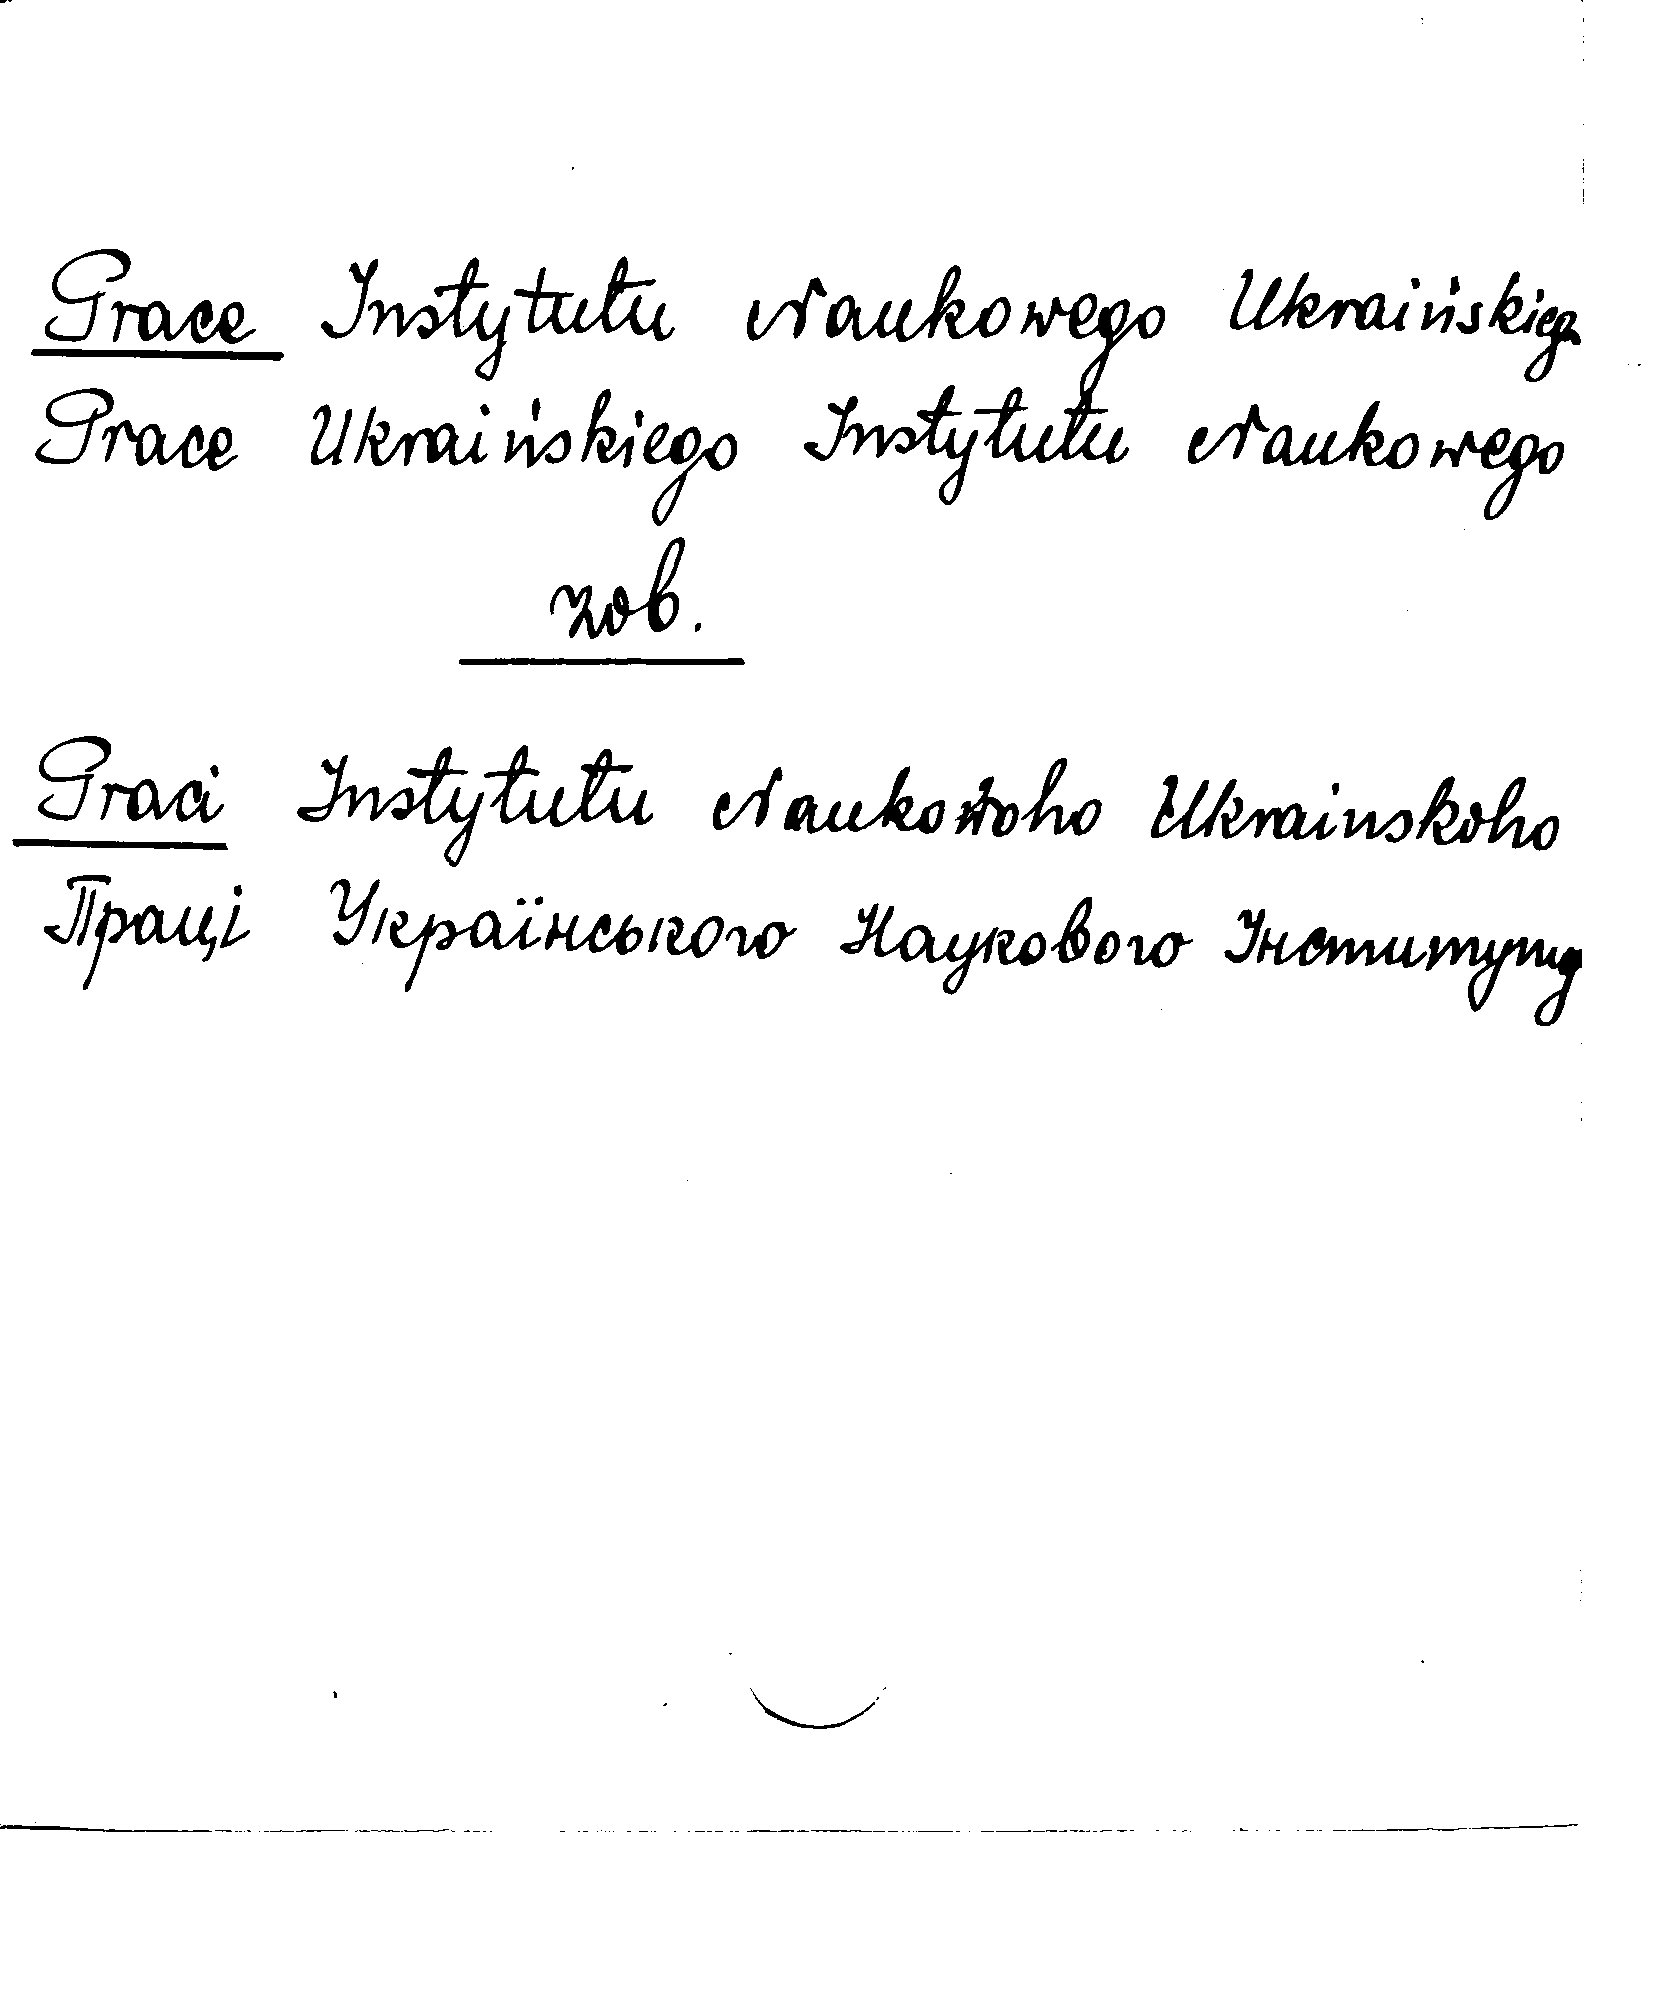 Prace Instytutu Naukowego Ukraińskiego
Prace Ukraińskiego Instytutu Naukowego
zob.
Praci Instytutu Naukowoho Ukrainskoho
Праці Українського Наукового Інституту